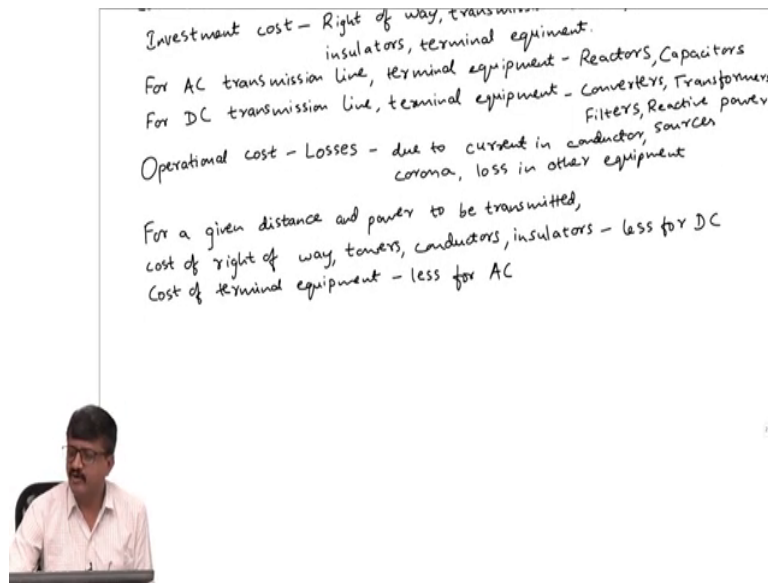 Investment cost - Right of way,
insulators, terminal equiment.
For AC transmission line, terminal equipment - Reactors, Capacitors
For DC transmission line, terminal equipment - Converters, Transformers
Filters, Reactive power
sources
Operational cost - Losses - due to current in conductor,
corona, loss in other equipment
For a given distance and power to be transmitted,
cost of right of way, towers, conductors, insulators - less for DC
Cost of terminal equipment - less for AC